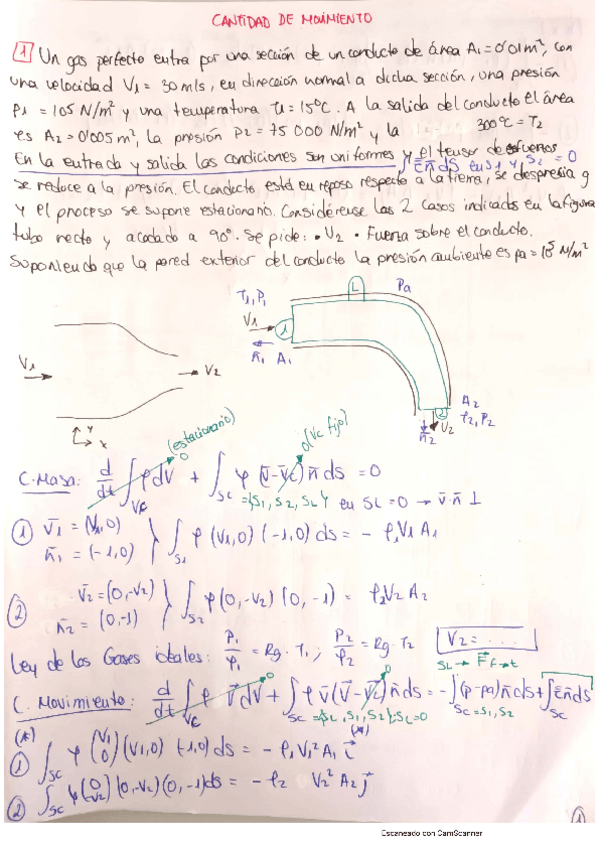 CANTIDAD DE MOVIMIENTO
1 Un gas perfecto entra por una sección de un conducto de área A₁ = 0'01 m², con
una velocidad V₁ = 30 m/s, en dirección normal a dicha sección, una presión
P₁ = 10⁵ N/m² y una temperatura T₁ = 15°C. A la salida del conducto el área
es A₂ = 0'005 m², la presión P₂ = 75 000 N/m² y la 300°C = T₂
En la entrada y salida las condiciones son uniformes y el tensor de esfuerzos
∫ τ n̄ dS en S₁ y S₂ = 0
se reduce a la presión. El conducto está en reposo respecto a la tierra, se desprecia g
y el proceso se supone estacionario. Considérense los 2 casos indicados en la figura
tubo recto y acodado a 90°. Se pide: • V₂ • Fuerza sobre el conducto.
Suponiendo que la pared exterior del conducto la presión ambiente es pa = 10⁵ N/m²
T₁, P₁
L
Pa
V₁
1
n̄₁ A₁
V₁
V₂
A₂
2
ρ₂, P₂
n̄₂
V₂
y
x
(estacionario)
0
0 (Vc fijo)
C. Masa: d/dt ∫Vc ρ dV + ∫Sc ρ (v̄ - v̄c) n̄ ds = 0
= {S₁, S₂, SL} en SL = 0 → v̄·n̄ ⊥
1 v̄₁ = (V₁, 0)
n̄₁ = (-1, 0)
∫S₁ ρ (V₁, 0) (-1, 0) ds = - ρ₁ V₁ A₁
2 v̄₂ = (0, -V₂)
n̄₂ = (0, -1)
∫S₂ ρ (0, -V₂) (0, -1) = ρ₂ V₂ A₂
Ley de los Gases ideales: P₁/ρ₁ = Rg · T₁ ; P₂/ρ₂ = Rg · T₂
V₂ = . . . .
SL → F̄ f→t
C. Movimiento: d/dt ∫Vc ρ v̄ dV + ∫Sc ρ v̄ (v̄ - v̄c) n̄ ds = - ∫ (p - pa) n̄ ds + ∫Sc τ n̄ ds
Sc = {SL, S₁, S₂} ; SL = 0
Sc = S₁, S₂
(*)
(*)
1 ∫Sc ρ (V₁ 0) (V₁, 0) (-1, 0) ds = - ρ₁ V₁² A₁ i
2 ∫Sc ρ (0 -V₂) (0, -V₂) (0, -1) ds = - ρ₂ V₂² A₂ j
1
Escaneado con CamScanner